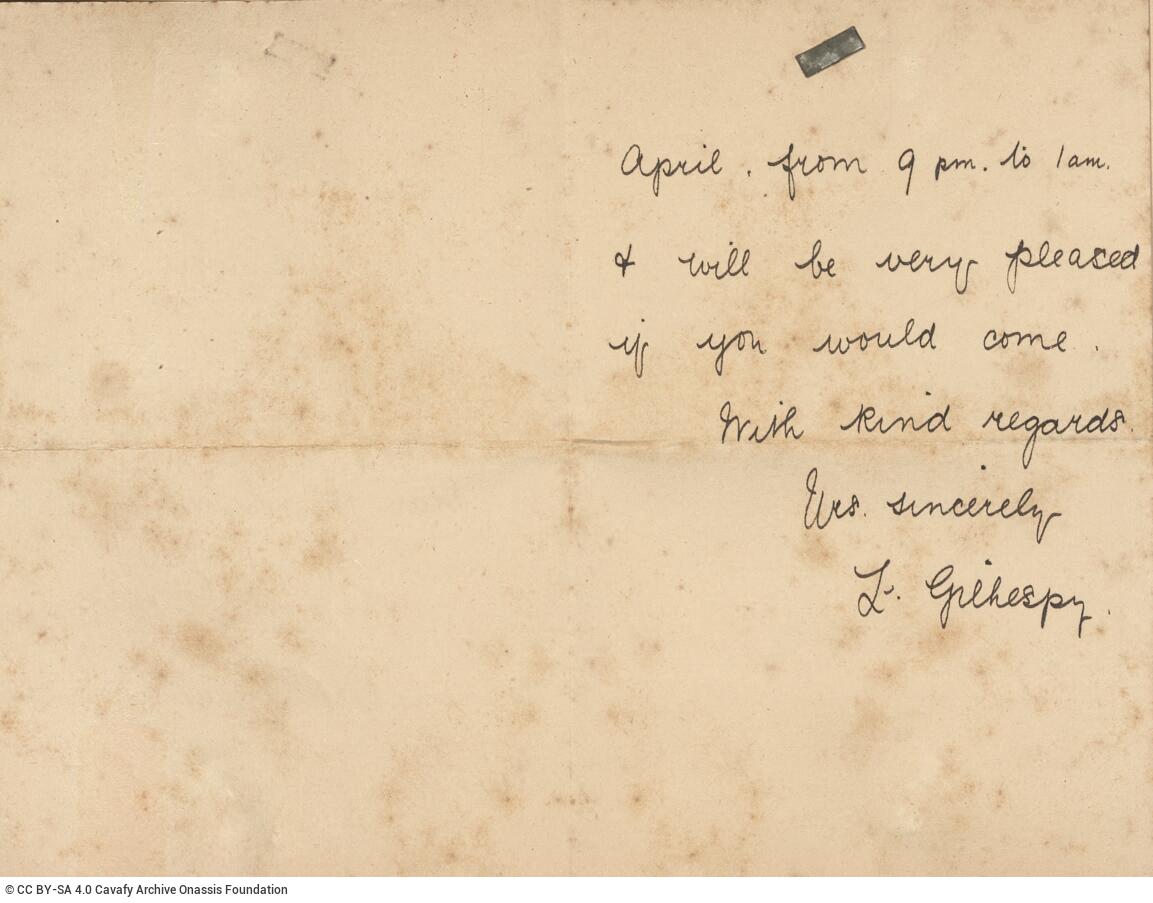 April. from 9 pm. to 1 am.
& will be very pleased
if you would come.
With kind regards.
Yrs. sincerely
L. Gilhespy.
© CC BY-SA 4.0 Cavafy Archive Onassis Foundation